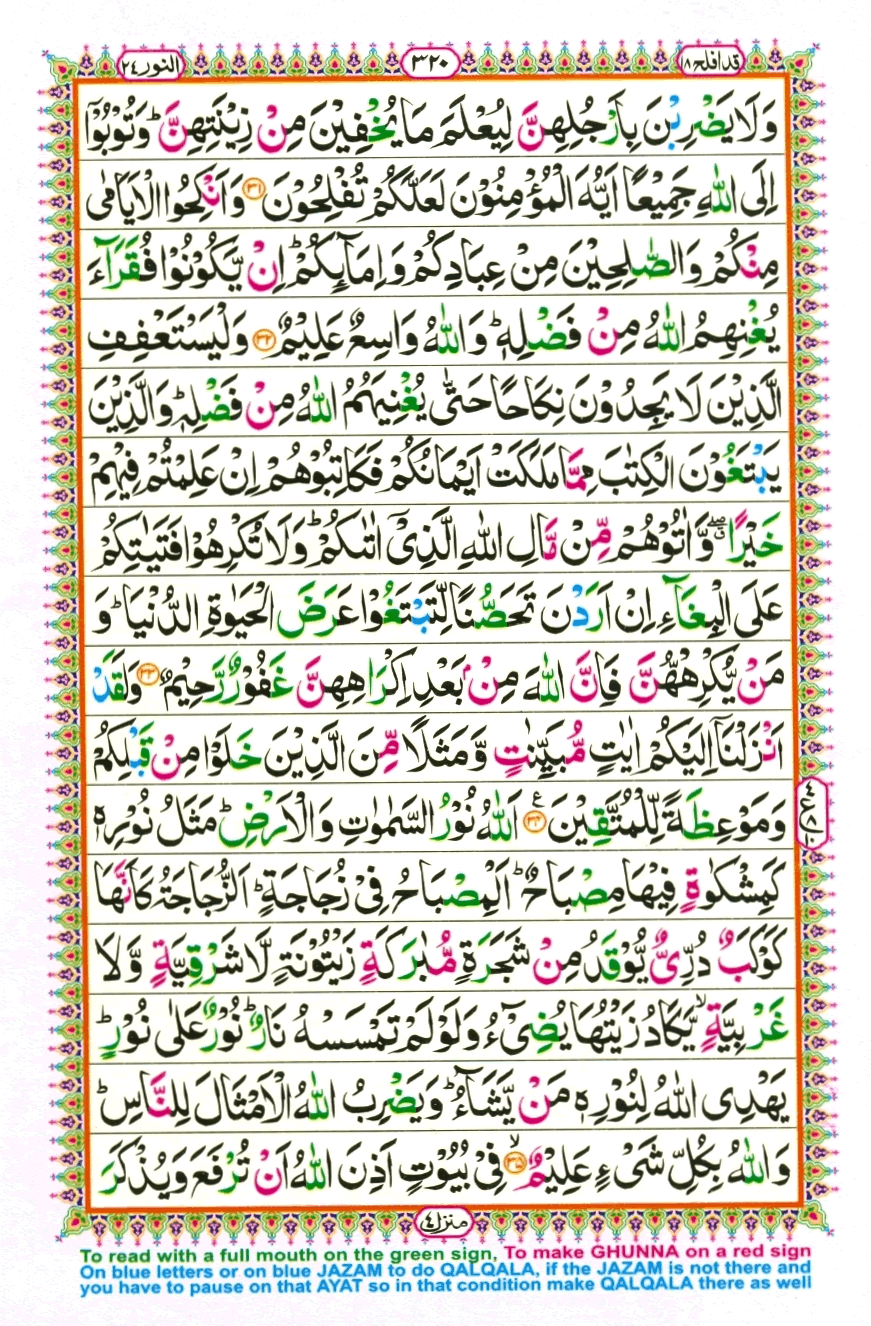 قد افلح ١٨
٣٢٠
النور ٢٤
وَلَا يَضْرِبْنَ بِاَرْجُلِهِنَّ لِيُعْلَمَ مَا يُخْفِيْنَ مِنْ زِيْنَتِهِنَّ ؕ وَتُوْبُوْۤا
اِلَى اللّٰهِ جَمِيْعًا اَيُّهَ الْمُؤْمِنُوْنَ لَعَلَّكُمْ تُفْلِحُوْنَ ﴿٣١﴾ وَاَنْكِحُوا الْاَيَامٰى
مِنْكُمْ وَالصّٰلِحِيْنَ مِنْ عِبَادِكُمْ وَاِمَآئِكُمْ ؕ اِنْ يَّكُوْنُوْا فُقَرَآءَ
يُغْنِهِمُ اللّٰهُ مِنْ فَضْلِهٖ ؕ وَاللّٰهُ وَاسِعٌ عَلِيْمٌ ﴿٣٢﴾ وَلْيَسْتَعْفِفِ
الَّذِيْنَ لَا يَجِدُوْنَ نِكَاحًا حَتّٰى يُغْنِيَهُمُ اللّٰهُ مِنْ فَضْلِهٖ ؕ وَالَّذِيْنَ
يَبْتَغُوْنَ الْكِتٰبَ مِمَّا مَلَكَتْ اَيْمَانُكُمْ فَكَاتِبُوْهُمْ اِنْ عَلِمْتُمْ فِيْهِمْ
خَيْرًا ۖ وَّاٰتُوْهُمْ مِّنْ مَّالِ اللّٰهِ الَّذِيْۤ اٰتٰىكُمْ ؕ وَلَا تُكْرِهُوْا فَتَيٰتِكُمْ
عَلَى الْبِغَآءِ اِنْ اَرَدْنَ تَحَصُّنًا لِّتَبْتَغُوْا عَرَضَ الْحَيٰوةِ الدُّنْيَا ؕ وَ
مَنْ يُّكْرِهْهُّنَّ فَاِنَّ اللّٰهَ مِنْۢ بَعْدِ اِكْرَاهِهِنَّ غَفُوْرٌ رَّحِيْمٌ ﴿٣٣﴾ وَلَقَدْ
اَنْزَلْنَاۤ اِلَيْكُمْ اٰيٰتٍ مُّبَيِّنٰتٍ وَّمَثَلًا مِّنَ الَّذِيْنَ خَلَوْا مِنْ قَبْلِكُمْ
وَمَوْعِظَةً لِّلْمُتَّقِيْنَ ﴿٣٤﴾ ع اَللّٰهُ نُوْرُ السَّمٰوٰتِ وَالْاَرْضِ ؕ مَثَلُ نُوْرِهٖ
كَمِشْكٰوةٍ فِيْهَا مِصْبَاحٌ ؕ اَلْمِصْبَاحُ فِيْ زُجَاجَةٍ ؕ اَلزُّجَاجَةُ كَاَنَّهَا
كَوْكَبٌ دُرِّيٌّ يُّوْقَدُ مِنْ شَجَرَةٍ مُّبٰرَكَةٍ زَيْتُوْنَةٍ لَّا شَرْقِيَّةٍ وَّلَا
غَرْبِيَّةٍ ۙ يَّكَادُ زَيْتُهَا يُضِيْٓءُ وَلَوْ لَمْ تَمْسَسْهُ نَارٌ ؕ نُوْرٌ عَلٰى نُوْرٍ ؕ
يَهْدِى اللّٰهُ لِنُوْرِهٖ مَنْ يَّشَآءُ ؕ وَيَضْرِبُ اللّٰهُ الْاَمْثَالَ لِلنَّاسِ ؕ
وَاللّٰهُ بِكُلِّ شَيْءٍ عَلِيْمٌ ۙ ﴿٣٥﴾ فِيْ بُيُوْتٍ اَذِنَ اللّٰهُ اَنْ تُرْفَعَ وَيُذْكَرَ
منزل ٤
To read with a full mouth on the green sign, To make GHUNNA on a red sign
On blue letters or on blue JAZAM to do QALQALA, if the JAZAM is not there and
you have to pause on that AYAT so in that condition make QALQALA there as well